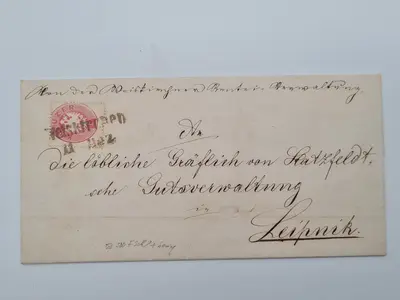 Von der Weiskirchner Rentei Verwaltung,
Weiskirchen
11 Dez
An
Die löbliche Gräflich von Hatzfeldt-
sche Gutsverwaltung
in
Leipnik.